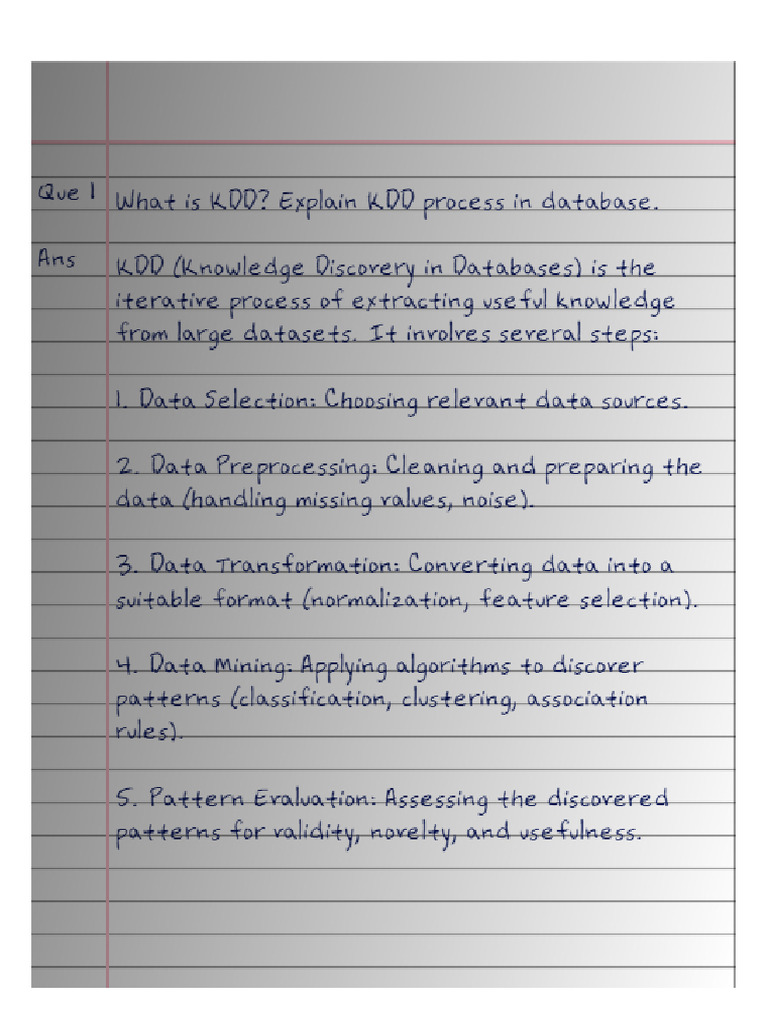 Que 1 What is KDD? Explain KDD process in database.
Ans KDD (Knowledge Discovery in Databases) is the
iterative process of extracting useful knowledge
from large datasets. It involves several steps:
1. Data Selection: Choosing relevant data sources.
2. Data Preprocessing: Cleaning and preparing the
data (handling missing values, noise).
3. Data Transformation: Converting data into a
suitable format (normalization, feature selection).
4. Data Mining: Applying algorithms to discover
patterns (classification, clustering, association
rules).
5. Pattern Evaluation: Assessing the discovered
patterns for validity, novelty, and usefulness.